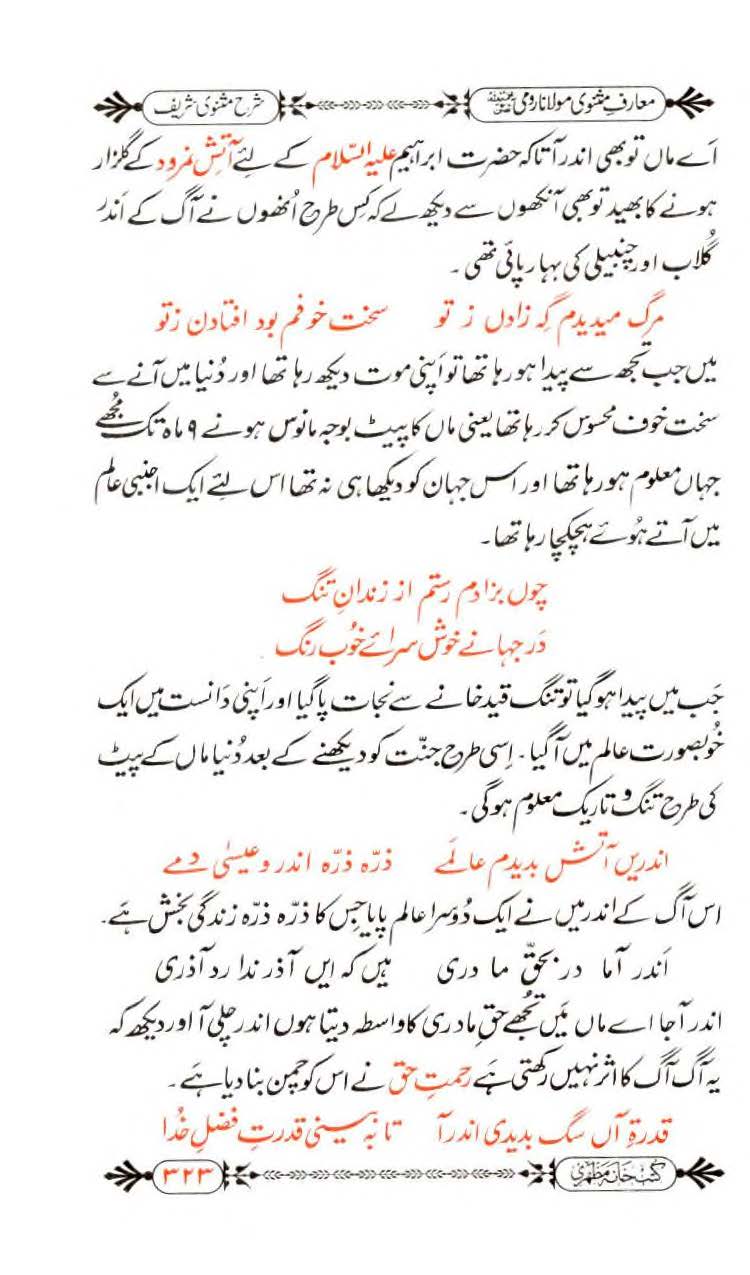 معارفِ مثنوی مولانا رومی شرح مثنوی شریف
اَے ماں تو بھی اندر آ تاکہ حضرت ابراہیم علیہ السّلام کے لئے آتشِ نمرود کے گلزار
ہونے کا بھید تو بھی آنکھوں سے دیکھ لے کہ کِس طرح اُنھوں نے آگ کے اَندر
گُلاب اور چنبیلی کی بہار پائی تھی ۔
مرگ میدیدم گِہ زادں ز تو سخت خوفم بود افتادن زتو
میں جب تجھ سے پیدا ہو رہا تھا تو اَپنی موت دیکھ رہا تھا اور دُنیا میں آنے سے
سخت خوف محسوس کر رہا تھا یعنی ماں کا پیٹ بوجہ مانوس ہونے ۹ ماہ تک مُجھے
جہاں معلوم ہو رہا تھا اور اس جہان کو دیکھا ہی نہ تھا اس لئے ایک اجنبی عالم
میں آتے ہُوئے ہچکچا رہا تھا۔
چوں بزادم رستم از زندانِ تنگ
دَر جہانے خوش سرائے خُوب رنگ
جَب میں پیدا ہو گیا تو تنگ قید خانے سے نجات پا گیا اور اَپنی دَانست میں ایک
خُوبصورت عالم میں آ گیا ۔ اِسی طرح جنّت کو دیکھنے کے بعد دُنیا ماں کے پیٹ
کی طرح تنگ و تاریک معلوم ہو گی ۔
اندریں آتش بدیدم عالَمے ذرّہ ذرّہ اندر و عیسیٰ دمے
اس آگ کے اندر میں نے ایک دُوسرا عالم پایا جِس کا ذرّہ ذرّہ زندگی بخش ہے۔
اَندر آ ما در بحقّ ما دری ہیں کہ ایں آذر ندا رد آذری
اندر آ جا اے ماں مَیں تجُھے حقِ مادری کا واسطہ دیتا ہوں اندر چلی آ اور دیکھ کہ
یہ آگ آگ کا اثر نہیں رکھتی ہے رحمتِ حق نے اس کو چمن بنا دیا ہے ۔
قدرةِ آں سگ بدیدی اندر آ تا بہ بینی قدرتِ فضلِ خُدا
کتب خانہ مظہری ۳۲۳